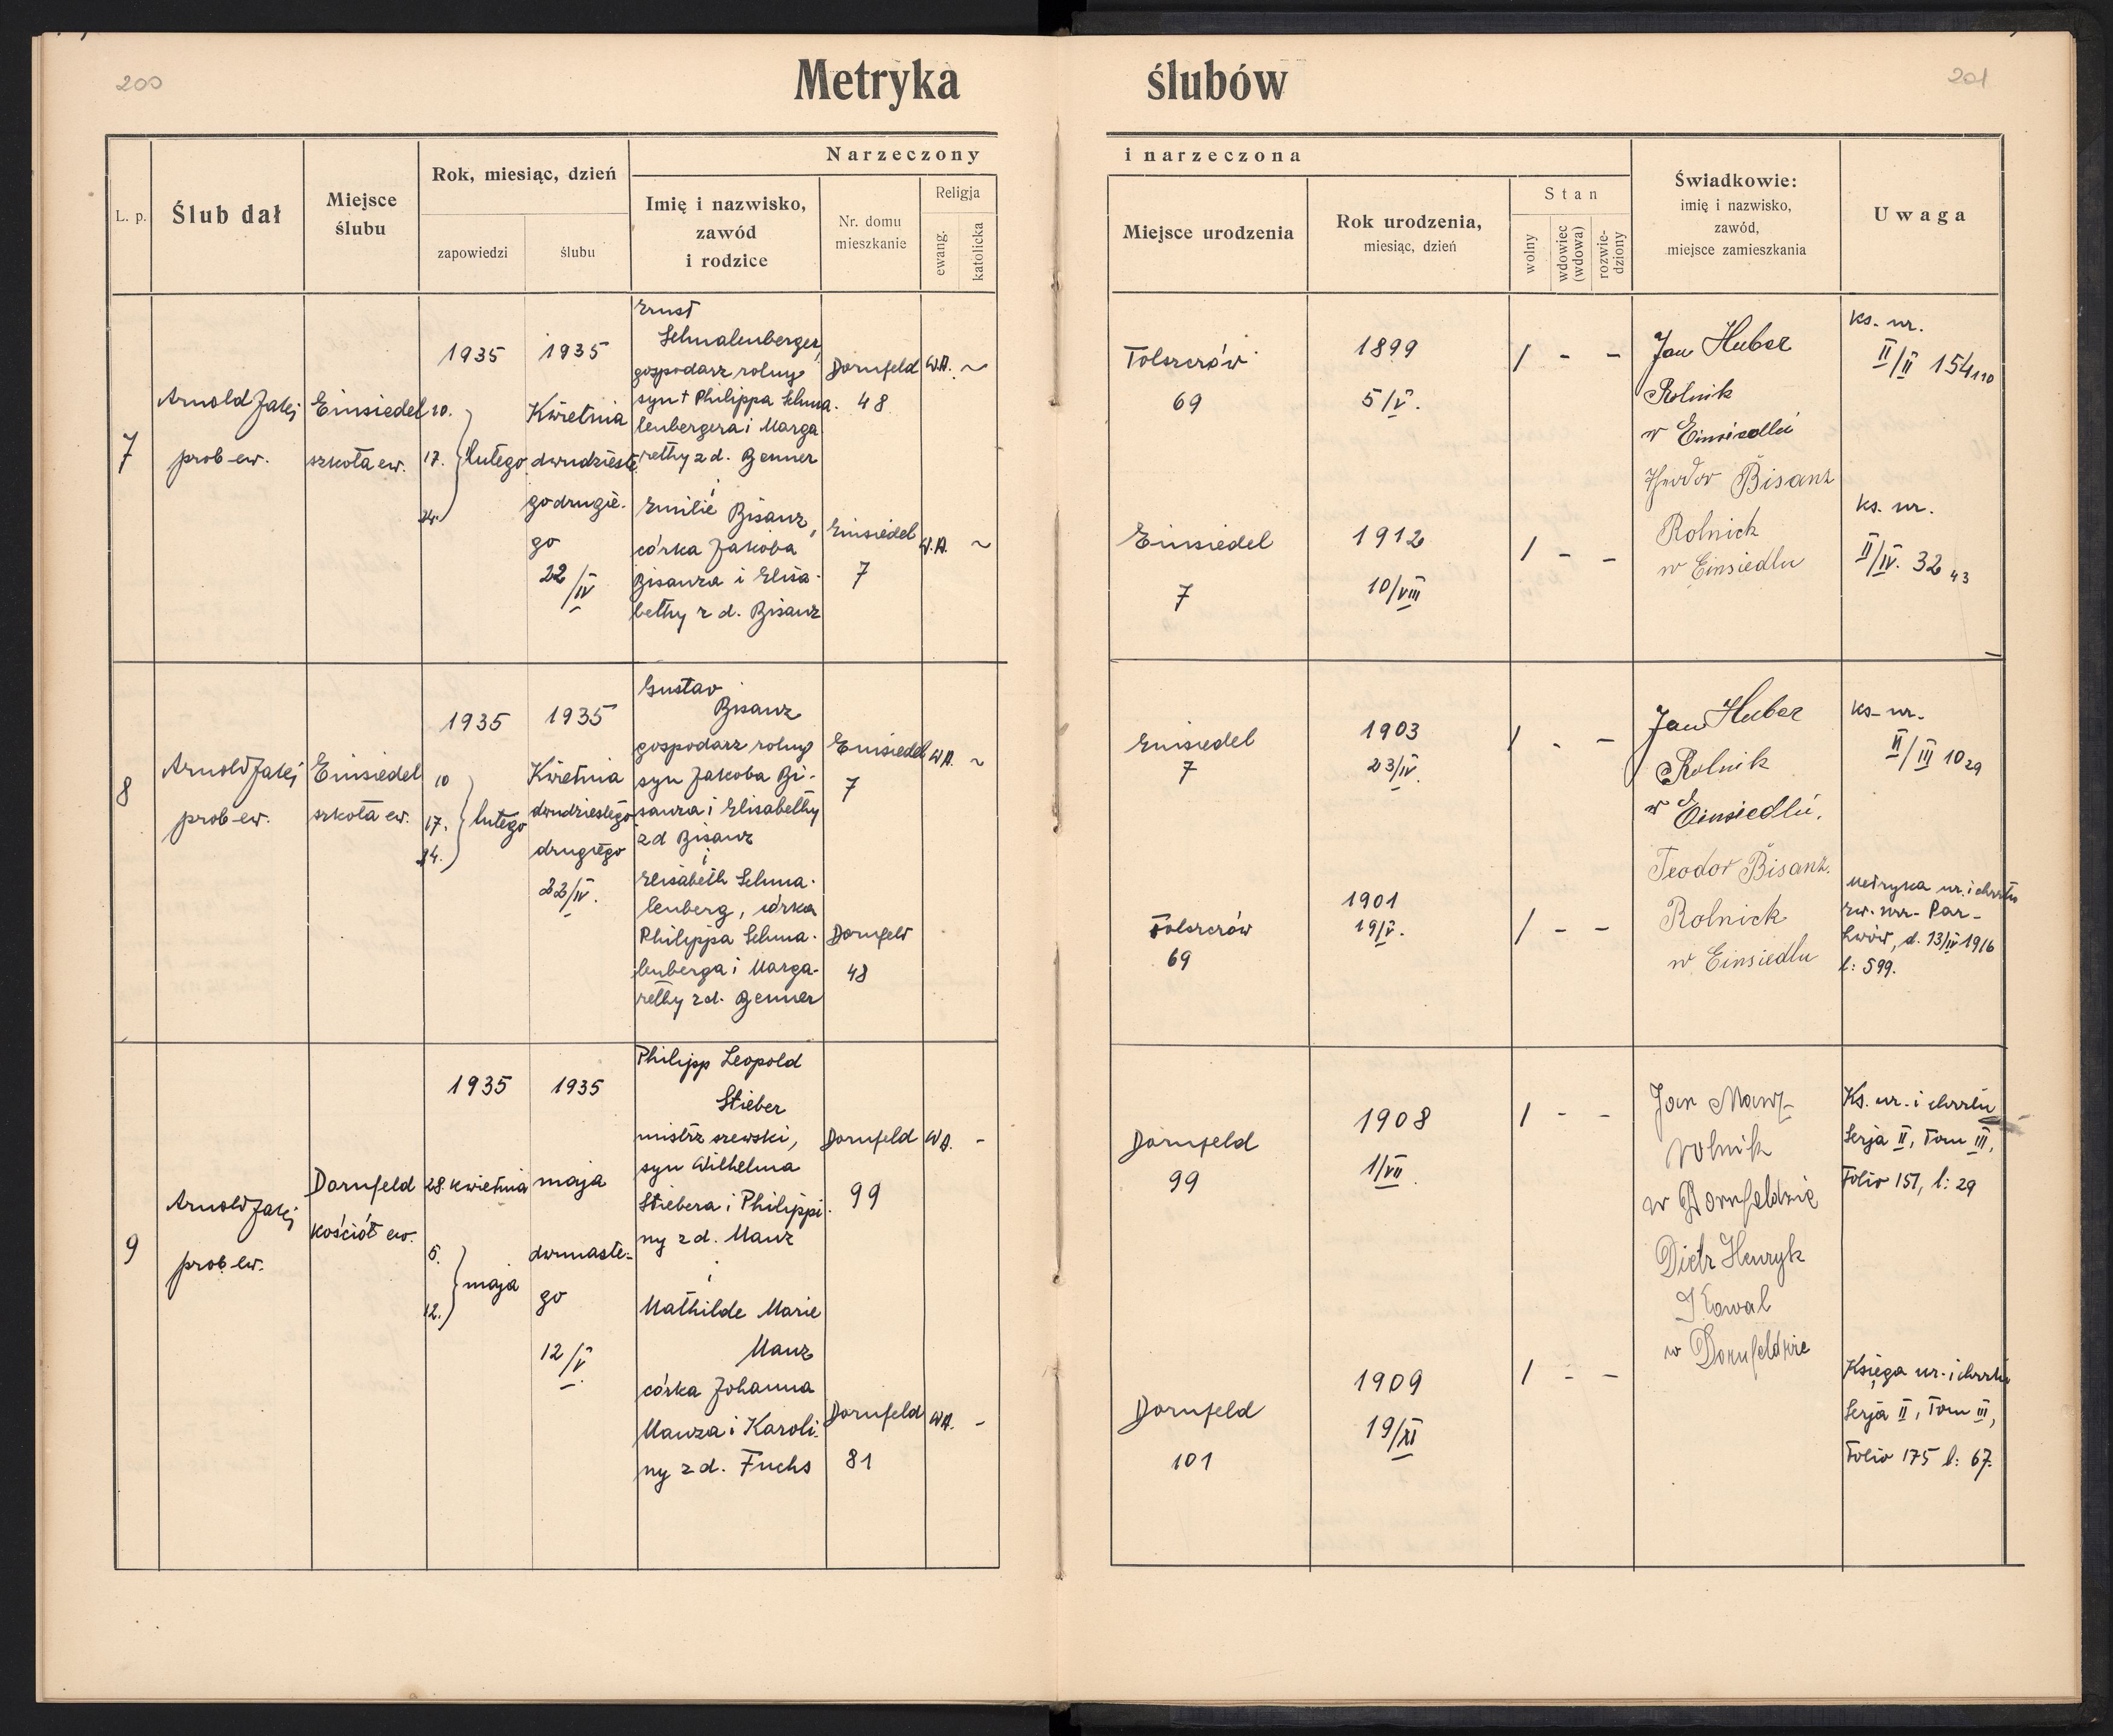 200
Metryka
L. p.
Ślub dał
Miejsce
ślubu
Rok, miesiąc, dzień
zapowiedzi
ślubu
Narzeczony
Imię i nazwisko,
zawód
i rodzice
Nr. domu
mieszkanie
Religja
ewang.
katolicka
7
Arnold Jaki
prob ew.
Einsiedel
szkoła ew.
1935
10.
17. lutego
24.
1935
Kwietnia
dwudzieste
godrugie-
go
22/IV
Ernst
Schmalenberger,
gospodarz rolny
syn † Philippa Schma-
lenbergera i Marga
rethy z d. Benner
i
Emilie Bisanz,
córka Jakoba
Bisanza i Elisa-
bethy z d. Bisanz
Dornfeld
48
Einsiedel
7
W.A. ~
W.A. ~
8
Arnold Jaki
prob ew.
Einsiedel
szkoła ew.
1935
10
17. lutego
24.
1935
Kwietnia
dwudziestego
drugiego
22/IV.
Gustav
Bisanz
gospodarz rolny
syn Jakoba Bi-
sanza i Elisabethy
z d Bisanz
i
Elisabeth Schma-
lenberg, córka
Philippa Schma-
lenberga i Marga-
rethy z d. Benner
Einsiedel
7
Dornfeld
48
W A. ~
9
Arnold Jaki
prob ew.
Dornfeld
kościół ew.
1935
28. kwietnia
5.
maja
12.
1935
maja
dwunaste-
go
12/V.
Philipp Leopold
Stieber
mistrz szewski,
syn Wilhelma
Stiebera i Philippi-
ny z d. Manz
i
Mathilde Marie
Manz
córka Johanna
Manza i Karoli-
ny z d. Fuchs
Dornfeld
99
Dornfeld
81
W A. -
W A. -
201
ślubów
i narzeczona
Miejsce urodzenia
Rok urodzenia,
miesiąc, dzień
Stan
wolny
wdowiec
(wdowa)
rozwie-
dziony
Świadkowie:
imię i nazwisko,
zawód,
miejsce zamieszkania
Uwaga
Tolszczów
69
1899
5/V.
/ - -
Einsiedel
7
1912
10/VIII
/ - -
Jan Huber
Rolnik
w Einsiedlu
Theodor Bisanz
Rolnick
w Einsiedlu
Ks. ur.
II/II 154 110
Ks. ur.
II/IV. 32 43
Einsiedel
7
1903
23/IV.
/ - -
Tolszczów
69
1901
19/V.
/ - -
Jan Huber
Rolnik
w Einsiedlu.
Teodor Bisanz.
Rolnick
w Einsiedlu
Ks. ur.
II/III 10 29
Metryka ur. i chrztu
Ew. Par-
Lwów, d. 13/IV 1916
l: 599.
Dornfeld
99
1908
1/VII.
/ - -
Dornfeld
101
1909
19/XI
/ - -
Jan Manz
rolnik
w Dornfeldzie
Dietr Henryk
Kowal
w Dornfeldzie
Ks. ur. i chrztu
Serja II, Tom III,
Folio 151, l: 29
Księga ur. i chrztu
Serja II, Tom III,
Folio 175 l: 67.